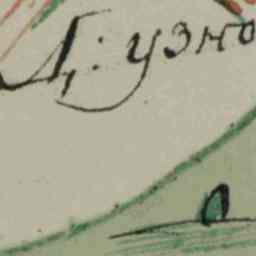 Д: узно